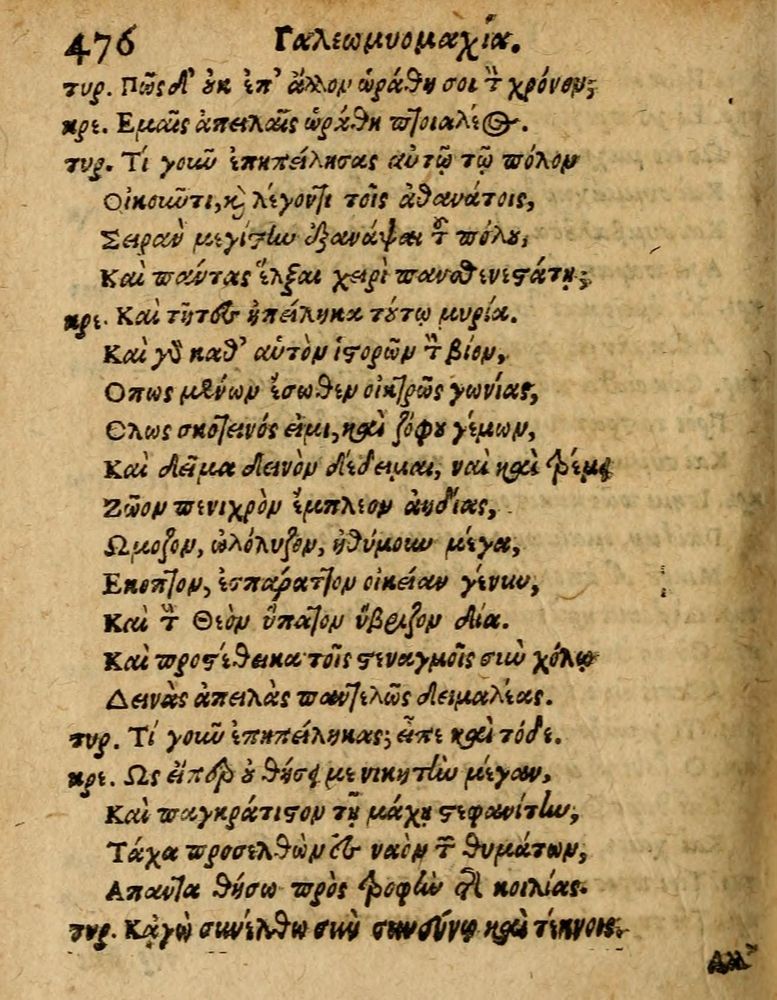 476 Γαλεωμυομαχία.
τυρ. Πῶς δ' οὐκ ἐπ' ἄλλον ὡράθη σοι τὸν χρόνον;
κρε. Εμαῖς ἀπειλαῖς ὡράθη πτοιαλέος.
τυρ. Τί γοιῦ ἐπηπείλησας αὐτῷ τῷ πόλον
Οἰκοιῶτι, καὶ λέγοντι τοῖς ἀθανάτοις,
Σειρὰν μεγίστην ἐξανάψαι τοῦ πόλου,
Καὶ πάντας ἕλξαι χειρὶ πανσθενεστάτῃ;
κρε. Καὶ τῆτες ἠπείληκα τούτῳ μυρία.
Καὶ γὰρ καθ' αὑτὸν ἱστορῶν τὸν βίον,
Οπως μένων ἔσωθεν οἰκτρῶς γωνίας,
Ολως σκοτεινός εἰμι, καὶ ζόφου γέμων,
Καὶ δεῖμα δεινὸν δέδειμαι, ναὶ καὶ τρέμω
Ζῶον πενιχρὸν ἔμπλεον ἀηδίας,
Ωμοζον, ὠλόλυζον, ἠθύμουν μέγα,
Εκοπτον, ἐσπάραττον οἰκείαν γένυν,
Καὶ τὸν Θεὸν ὕπατον ὕβριζον Δία.
Καὶ προστέθεικα τοῖς στεναγμοῖς σὺν χόλῳ
Δεινὰς ἀπειλὰς παντελῶς δειμαλέας.
τυρ. Τί γοιῦ ἐπηπείληκας; εἶπε καὶ τόδε.
κρε. Ως εἴπερ οὐ θήσει με νικητὴν μέγαν,
Καὶ παγκράτιστον τῇ μάχῃ στεφανίτην,
Τάχα προσελθὼν ἐς ναὸν τῶν θυμάτων,
Απαντα θήσω πρὸς τροφὴν τῆς κοιλίας.
τυρ. Κἀγὼ συνέλθω σὺν συνεύνῳ καὶ τέκνοις.